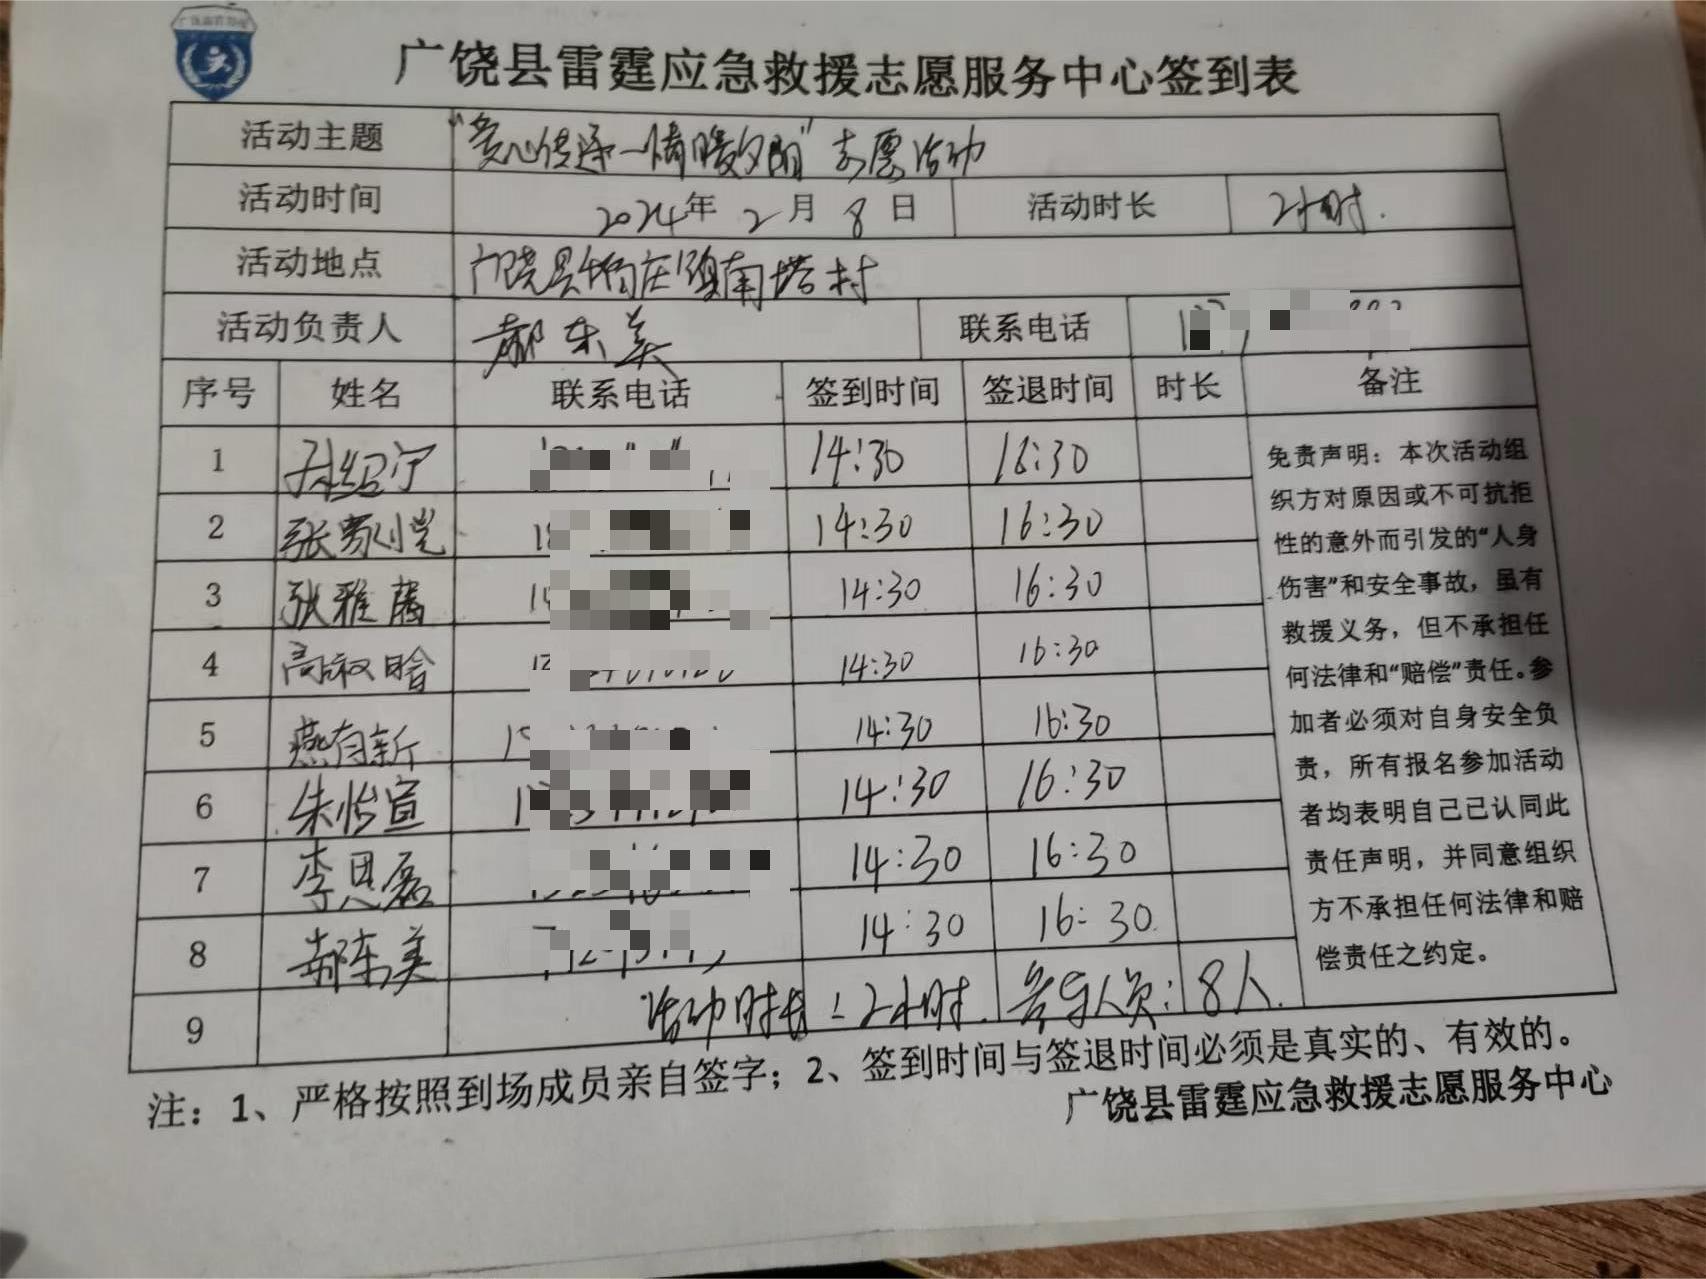 广饶县雷霆应急救援志愿服务中心签到表
活动主题 "爱心传递一情暖夕阳"志愿活动
活动时间 2024年 2月 8日 活动时长 2小时.
活动地点 广饶县稻庄镇南塔村
活动负责人 郝东美 联系电话
序号 姓名 联系电话 签到时间 签退时间 时长 备注
1 14:30 16:30
2 张 14:30 16:30
3 张雅腾 14:30 16:30
4 高 14:30 16:30
5 燕有新 14:30 16:30
6 朱怡宣 14:30 16:30
7 李恩磊 14:30 16:30
8 郝东美 14:30 16:30
9 活动时长:2小时. 参与人员:8人.
免责声明：本次活动组
织方对原因或不可抗拒
性的意外而引发的“人身
伤害”和安全事故，虽有
救援义务，但不承担任
何法律和“赔偿”责任。参
加者必须对自身安全负
责，所有报名参加活动
者均表明自己已认同此
责任声明，并同意组织
方不承担任何法律和赔
偿责任之约定。
注：1、严格按照到场成员亲自签字；2、签到时间与签退时间必须是真实的、有效的。
广饶县雷霆应急救援志愿服务中心